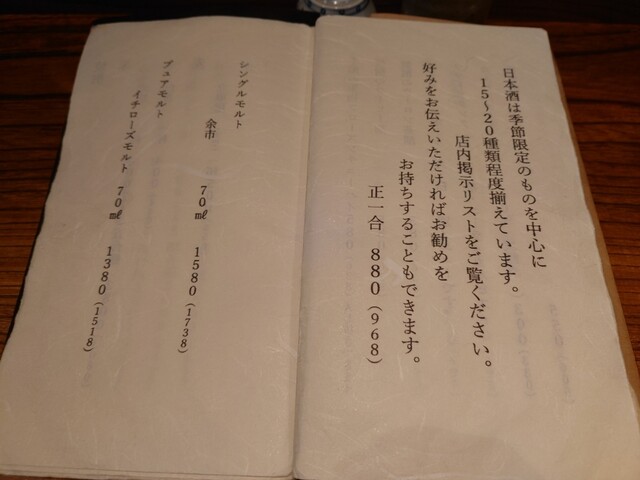 日本酒は季節限定のものを中心に
15～20種類程度揃えています。
店内掲示リストをご覧ください。
好みをお伝えいただければお勧めを
お持ちすることもできます。
正一合 880(968)
シングルモルト
余市 70㎖ 1580(1738)
ピュアモルト
イチローズモルト 70㎖ 1380(1518)